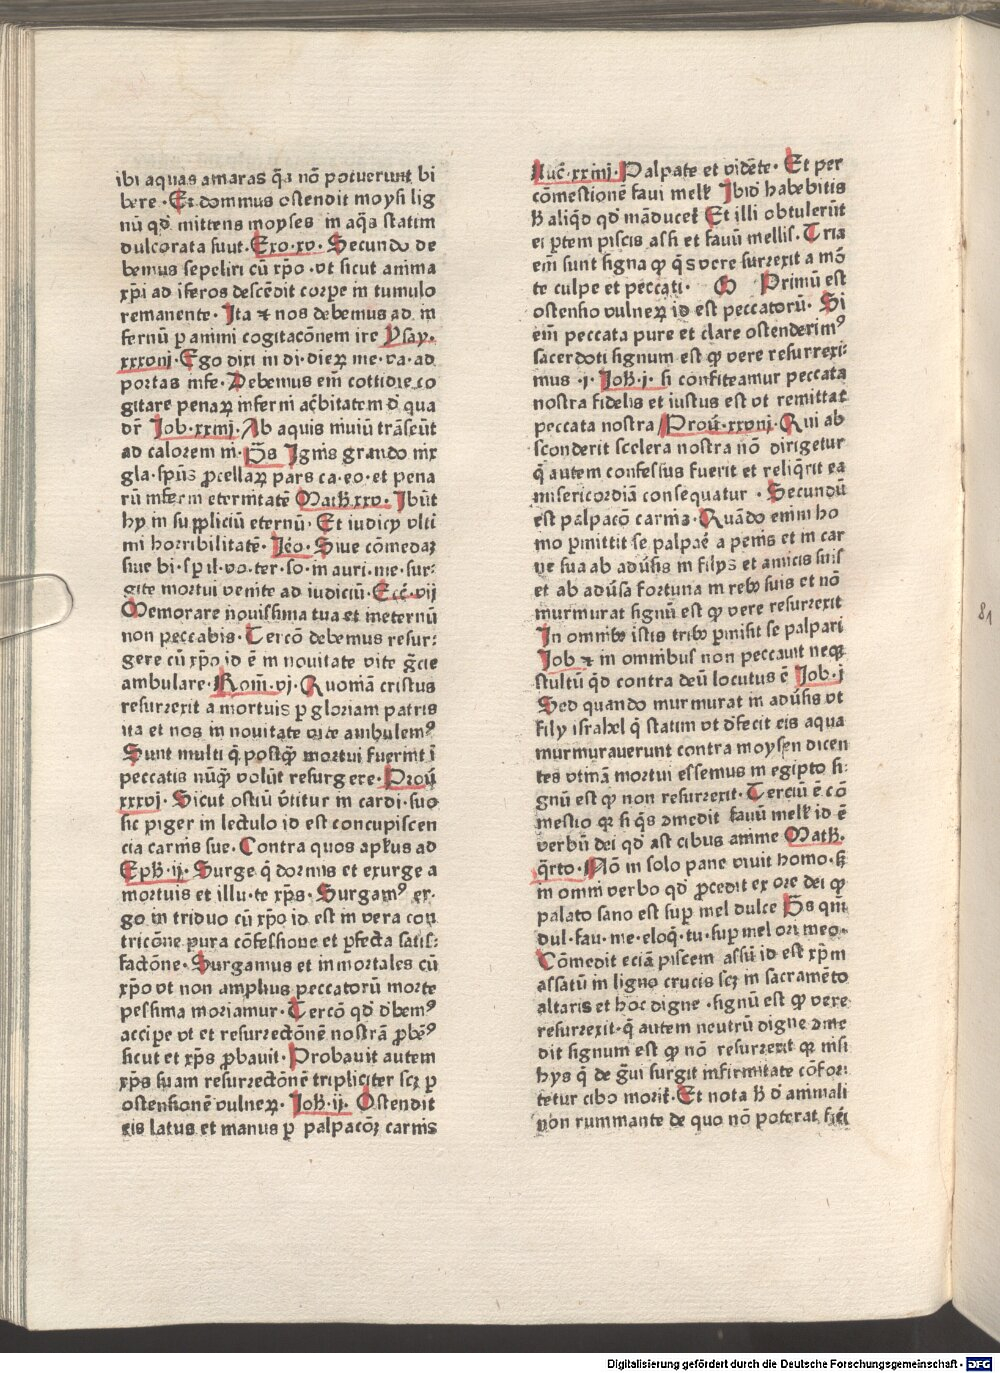 ibi aquas amaras q̄a nō potuerunt bi
bere · Et dominus ostendit moysi lig
nū qd̄ mittens moyses in aq̄s statim
dulcorata sunt · Exo · xv · Secundo de
bemus sepeliri cū xp̄o · vt sicut anima
xp̄i ad īferos descēdit corpe in tumulo
remanente · Ita ⁊ nos debemus ad in
fernū p animi cogitacōnem ire Ysay ·
xxxvnj · Ego dixi in di · dieꝝ me · va · ad
portas infe · Debemus em̄ cottidie co
gitare penaꝝ inferni ac̄bitatem d̄ qua
dr̄ Iob · xxiiij · Ab aquis niuiū trāseūt
ad calorem ni · P̄s Ignis grando nix
gla · spūs ꝓcellaꝝ pars ca · eo · et pena
rū inferni eternitatē Math · xxv · Ibūt
hy in suppliciū eternū · Et iudicy vlti
mi horribilitatē · Iēo · Siue cōmedaꝫ
siue bi · s p il · vo · ter · so · in auri · me · sur⸗
gite mortui venite ad iudiciū · Ecc̄ · vij
Memorare nouissima tua et ineternū
non peccabis · Tercō debemus resur⸗
gere cū xp̄o id ē in nouitate vite gr̄cie
ambulare · Rom̄ · vj · Quoniā cristus
resurrexit a mortuis p gloriam patris
ita et nos in nouitate vite ambulem⁹
Sunt multi q̄ postq̄ mortui fuerint ī
peccatis nūq̄ volūt resurgere · Prou̅
xxxvj · Sicut ostiū v̄titur in cardi · suo
sic piger in lectulo id est concupiscen
cia carnis sue · Contra quos apl̄us ad
Eph̄ · ij · Surge q̄ dormis et exurge a
mortuis et illu · te xp̄s · Surgam⁹ er⸗
go in triduo cū xp̄o id est in vera con
tricōne pura cōfessione et pfecta satis⸗
factōne · Surgamus et inmortales cū
xp̄o vt non amplius peccatorū morte
pessima moriamur · Tercō qd̄ d̄bem⁹
accipe vt et resurrectōnē nostrā ꝓbē⁹
sicut et xp̄s ꝓbauit · Probauit autem
xp̄s suam resurrectōnē tripliciter scꝫ p
ostensionē vulneꝝ · Ioh̄ · ij · Ostendit
eis latus et manus p palpacōꝫ carnis
Luc̄ · xxiiij · Palpate et videte · Et per
cōmestionē faui mell' Ibid̄ habebitis
h̄ aliqd̄ qd̄ māducet' Et illi obtulerūt
ei ptem piscis assi et fauū mellis · Tria
em̄ sunt signa ꝙ q̄s vere surrexit a mō
te culpe et peccati · Primū est
ostensio vulneꝝ id est peccatorū · Si
em̄ peccata pure et clare ostenderim⁹
sacerdoti signum est ꝙ vere resurrexi⸗
mus · i · Ioh̄ · j · si confiteamur peccata
nostra fidelis et iustus est vt remittat
peccata nostra Prou̅ · xxvnj · Qui ab
sconderit scelera nostra nō dirigetur
q̄ autem confessus fuerit et reliq̄rit ea
misericordiā consequatur · Secundū
est palpacō carnis · Quādo enim ho
mo pmittit se palpae̅ a penis et in car
ne sua ab adu̅sis in filys et amicis suis
et ab adu̅sa fortuna in reb₉ suis et nō
murmurat signū est ꝙ vere resurrexit
In omnib₉ istis trib₉ pmisit se palpari
Iob ⁊ in omnibus non peccauit neqꝫ
stultū q̄d contra deū locutus ē Iob · j
Sed quando murmurat in adu̅sis vt
fily israhel q̄ statim vt d̄fecit eis aqua
murmurauerunt contra moysen dicen
tes vtinā mortui essemus in egipto si⸗
gnū est ꝙ non resurrexit · Terciū ē cō
mestio qꝛ si q̄s ꝯmedit fauū mell' id ē
verbū dei qd̄ ast cibus anime Math̄ ·
q̄rto · Nō in solo pane viuit homo · sꝫ
in omni verbo qd̄ ꝓcedit ex ore dei ꝙ
palato sano est sup mel dulce P̄s qm̄
dul · fau · me · eloq̄ · tu · sup mel ori meo ·
Cōmedit eciā piscem assū id est xp̄m
assatū in ligno crucis scꝫ in sacramēto
altaris et hoc digne · signū est ꝙ vere
resurrexit · q̄ autem neutrū digne ꝯme
dit signum est ꝙ nō resurrexit qꝛ nisi
hys q̄ de g̅ui surgit infirmitate cōfor⸗
tetur cibo morit' · Et nota h̄ d̄ animali
non ruminante de quo nō poterat fiei̅
81
Digitalisierung gefördert durch die Deutsche Forschungsgemeinschaft - DFG